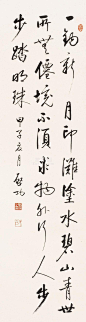 一钩新月印滩涂水碧山青世
所无仙境不须求物外行人步
步踏明珠 甲子夏月 启功